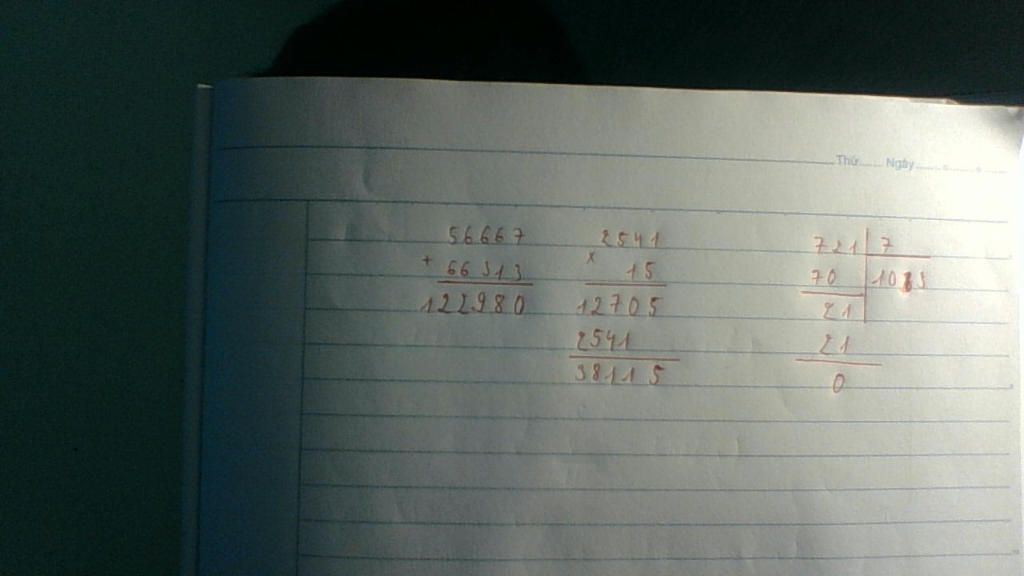 Thứ Ngày
56667
+ 66313
122980
2541
x 15
12705
2541
38115
721 7
70 103
21
21
0